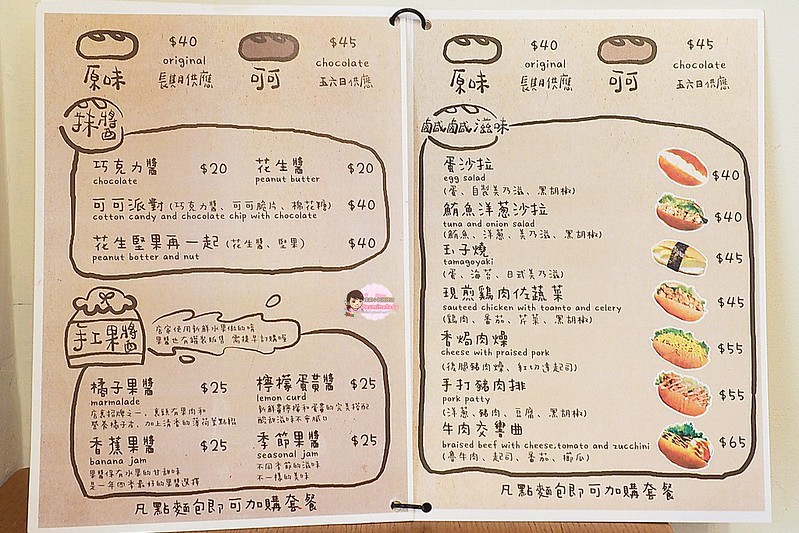 $40
original
原味 長期供應
$45
chocolate
可可 五六日供應
抹醬
巧克力醬 $20
chocolate
花生醬 $20
peanut butter
可可派對 (巧克力醬、可可脆片、棉花糖) $40
cotton candy and chocolate chip with chocolate
花生堅果再一起 (花生醬、堅果) $40
peanut botter and nut
手工果醬
店家使用新鮮水果做的唷
果醬也有罐裝販售 需提早訂購喔
橘子果醬 $25
marmalade
店長招牌之一，
檸檬蛋黃醬 $25
lemon curd
香蕉果醬 $25
banana jam
是一年四季最好的果醬選擇
季節果醬 $25
seasonal jam
不同季節的滋味
不一樣的美味
凡點麵包即可加購套餐
$40
original
原味 長期供應
$45
chocolate
可可 五六日供應
鹹鹹滋味
蛋沙拉 $40
egg salad
(蛋、自製美乃滋、黑胡椒)
鮪魚洋蔥沙拉 $40
tuna and onion salad
(鮪魚、洋蔥、美乃滋、黑胡椒)
玉子燒 $45
tamagoyaki
(蛋、海苔、日式美乃滋)
現煎雞肉佐蔬菜 $45
sauteed chicken with toamto and celery
(雞肉、番茄、芹菜、黑胡椒)
香焗肉燥 $55
cheese with praised pork
(後腿豬肉燥、紅切達起司)
手打豬肉排 $55
pork patty
(洋蔥、豬肉、豆腐、黑胡椒)
牛肉交響曲 $65
braised beef with cheese,tomato and zucchini
(魯牛肉、起司、番茄、櫛瓜)
凡點麵包即可加購套餐